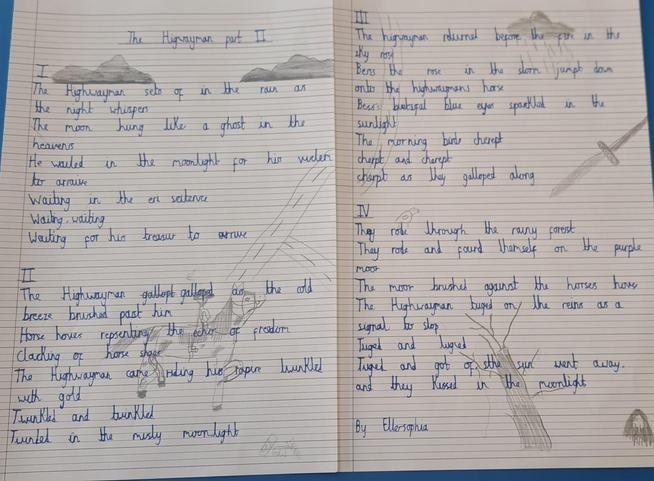 The Highwayman part II
I
The Highwayman sets of in the rain as
the night whispers
The moon hung like a ghost in the
heavens
He waited in the moonlight for his
to arrive
Waiting in the eri seitence
Waiting, waiting
Waiting for his treasur to arrive
II
The Highwayman gallopt galloped as the cold
breeze brushed past him
Horse hoves repsenting the echos of freedom
Clacking of horse shoes
The Highwayman came riding his rapire twinkled
with gold
Twinkled and twinkled
Twinkled in the misty moonlight
III
The highwayman returned before the fire in the
sky rose
Bess the rose in the storm jumpt down
onto the highwaymans horse
Bess's butiful blue eyes sparkled in the
sunlight
The morning birds cherept
cherpt and cherept
cherpt as they galloped along
IV
They rode through the rainy forest
They rode and found themself on the purple
moor
The moor brushed against the horses hoves
The Highwayman tuged on the reins as a
signal to stop
Tuged and tuged
Tuged and got of the sun went away.
and they kissed in the moonlight
By Ellersophia